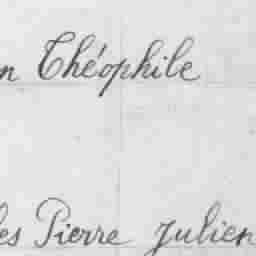 n Théophile
les Pierre Julien